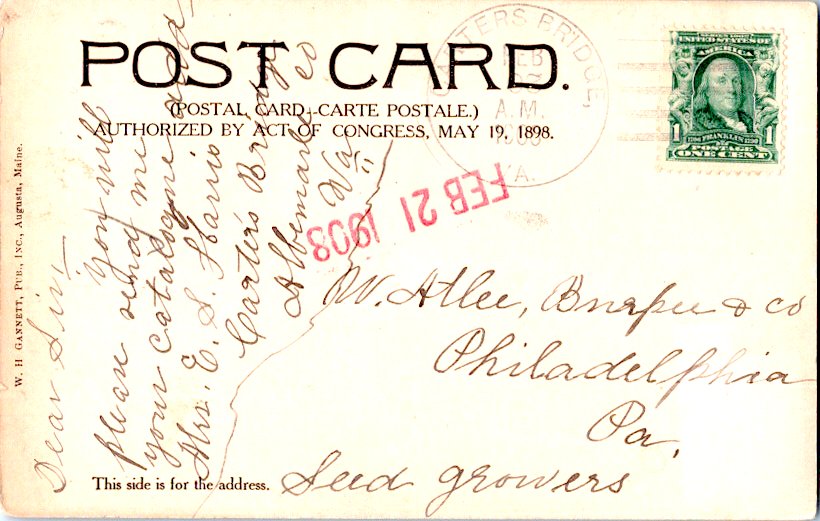 POST CARD.
(POSTAL CARD—CARTE POSTALE.)
AUTHORIZED BY ACT OF CONGRESS, MAY 19, 1898.
W. H. GANNETT, PUB., INC., Augusta, Maine.
CARTERS BRIDGE,
FEB
A.M.
VA.
UNITED STATES OF
AMERICA
1 FRANKLIN 1
POSTAGE
ONE CENT
FEB 21 1908
Dear Sir;—
you will
please send me
your catalogue
Mrs. E. S. Harris
Carter's Bridge
Albemarle co
Va.
W. Atlee, Burpee & co
Philadelphia
Pa,
Seed growers
This side is for the address.